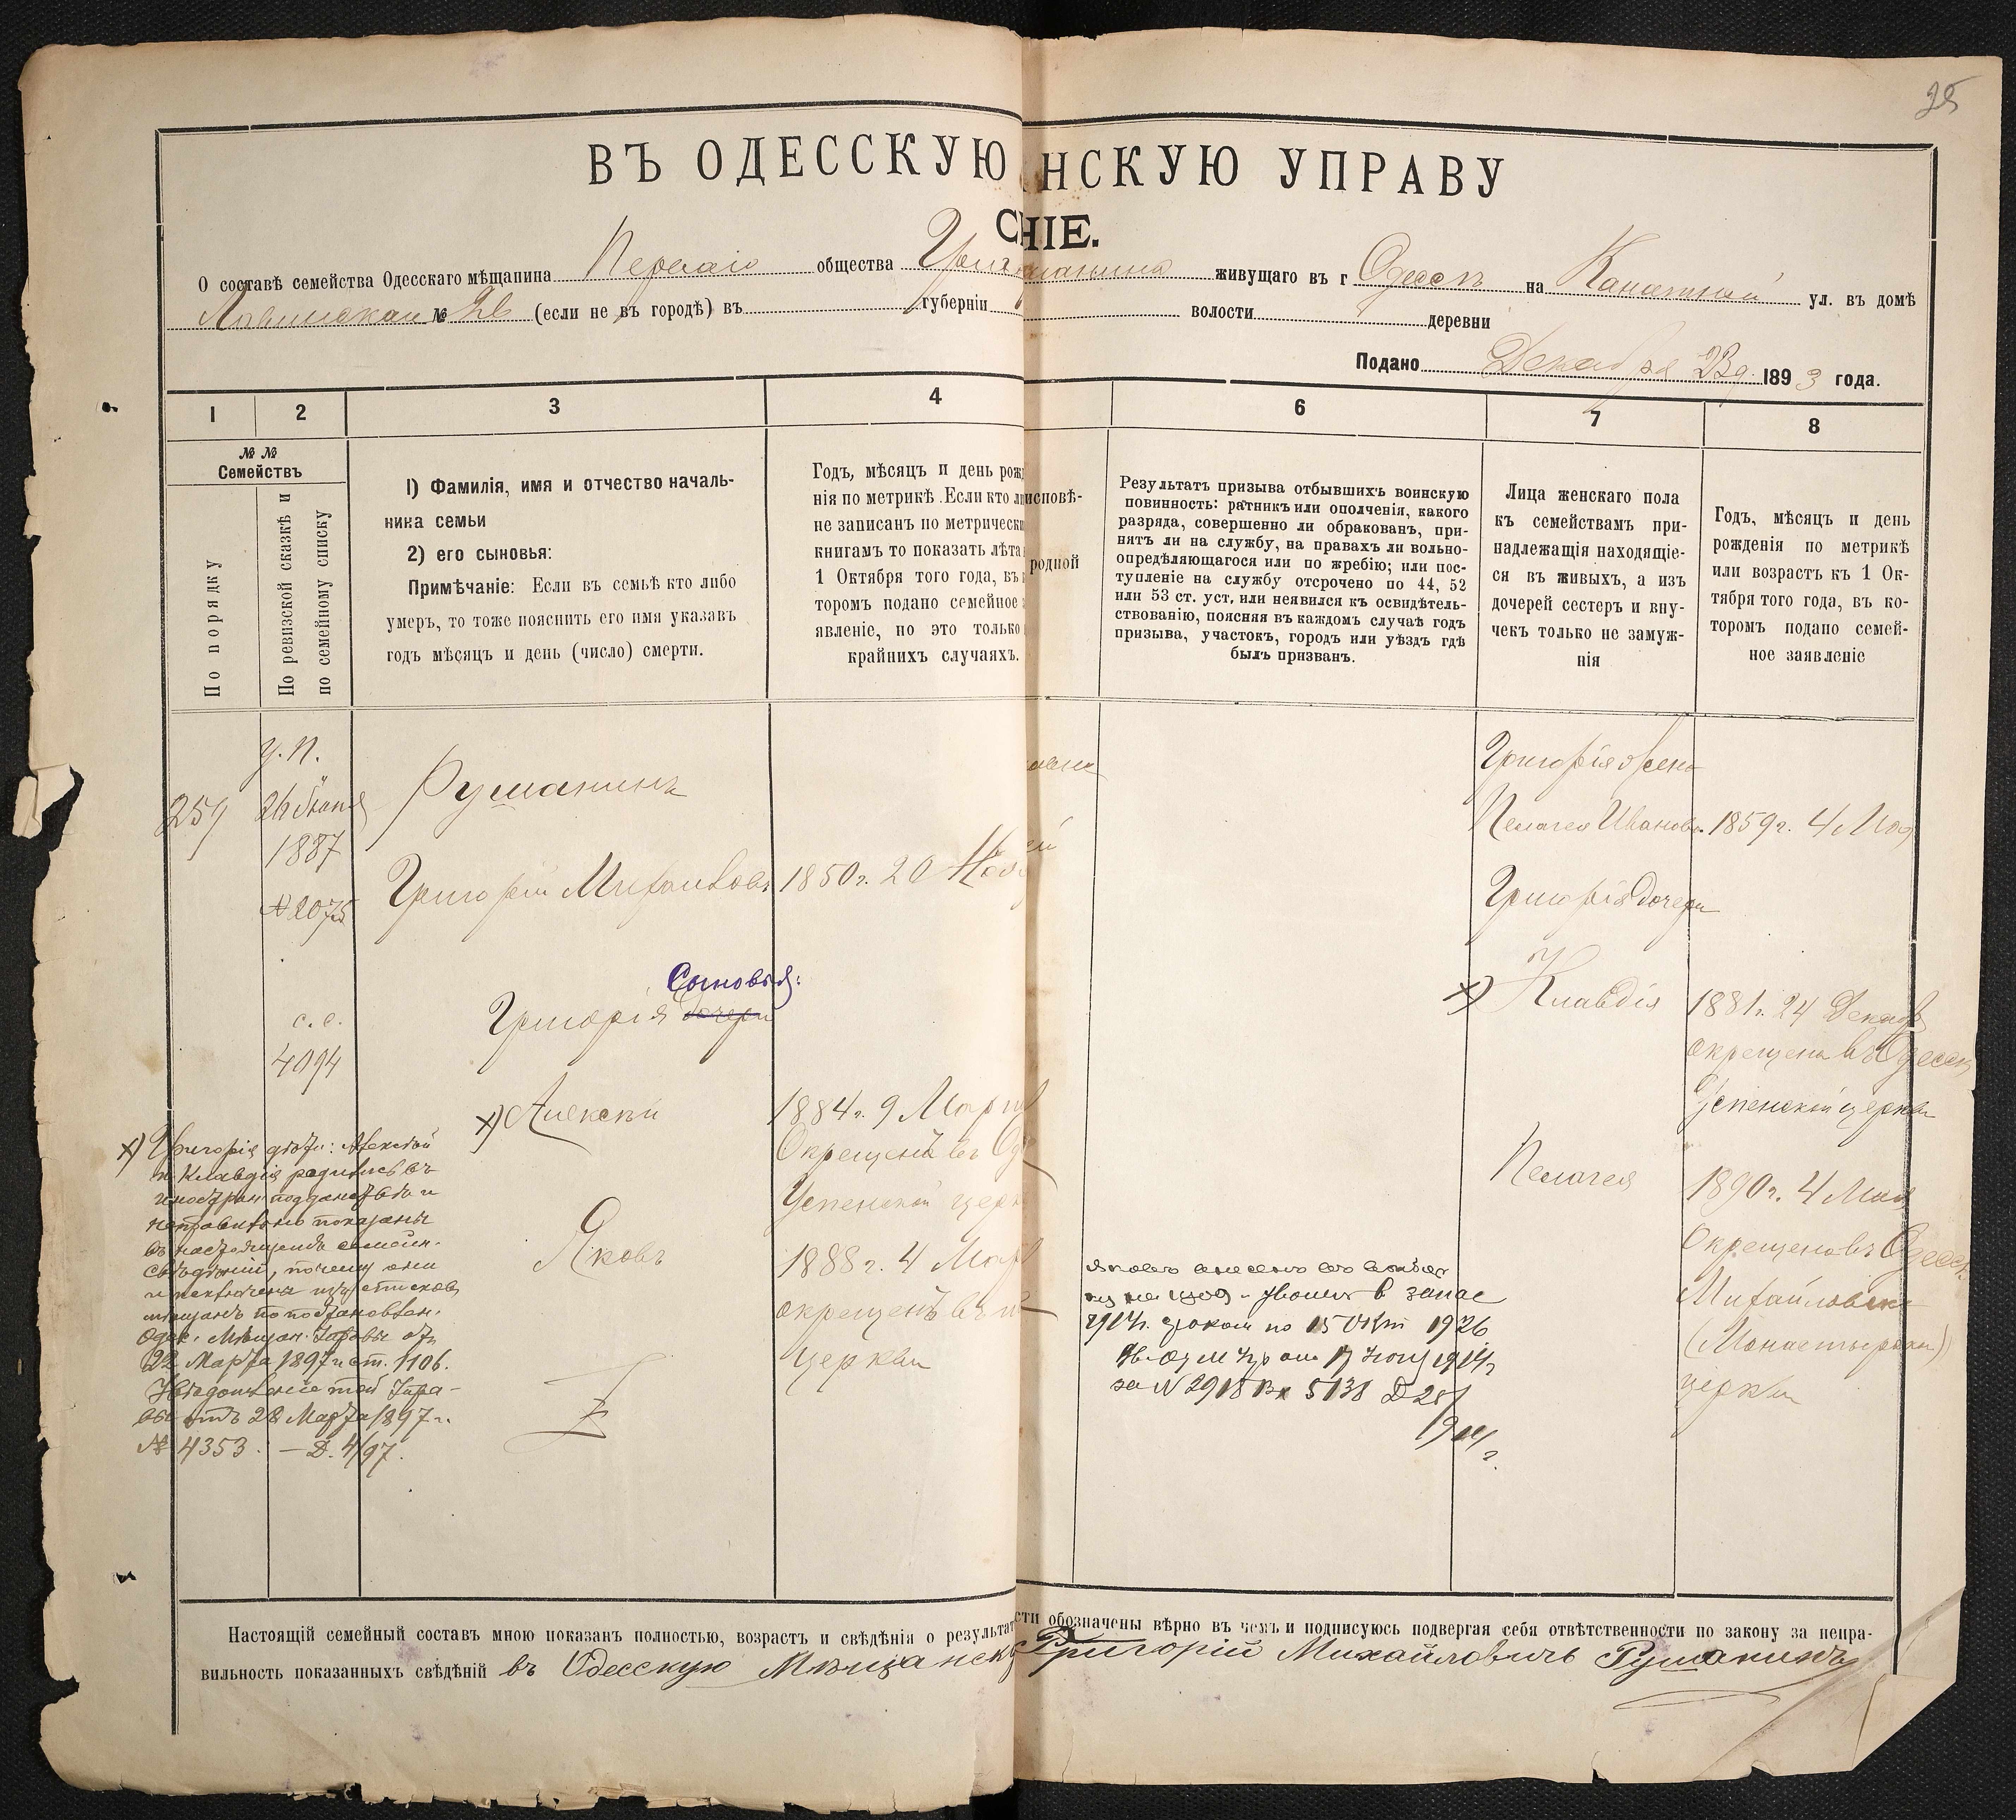 35
ВЪ ОДЕССКУЮ НСКУЮ УПРАВУ
НІЕ.
О составѣ семейства Одесскаго мѣщанина общества живущаго въ г Одессѣ на Канатной ул. въ домѣ
№ 26 (если не въ городѣ) въ губерніи волости деревни
Подано Декабря 23 д. 1893 года.
1 2 3 4 6 7 8
№ №
Семействъ
По порядку
По ревизской сказкѣ и
по семейному списку
1) Фамилія, имя и отчество началь-
ника семьи
2) его сыновья:
Примѣчаніе: Если въ семьѣ кто либо
умеръ, то тоже пояснить его имя указавъ
годъ мѣсяцъ и день (число) смерти.
Годъ, мѣсяцъ и день рож
нія по метрикѣ. Если кто ли
не записанъ по метрически
книгамъ то показать лѣта
1 Октября того года, въ
торомъ подано семейное
явленіе, но это только
крайнихъ случаяхъ.
исповѣ-
родной
Результатъ призыва отбывшихъ воинскую
повинность: ратникъ или ополченія, какого
разряда, совершенно ли обракованъ, при-
нятъ ли на службу, на правахъ ли вольно-
опредѣляющагося или по жребію; или пос-
тупленіе на службу отсрочено по 44, 52
или 53 ст. уст. или неявился къ освидѣтель-
ствованію, поясняя въ каждомъ случаѣ годъ
призыва, участокъ, городъ или уѣздъ гдѣ
былъ призванъ.
Лица женскаго пола
къ семействамъ при-
надлежащія находящіе-
ся въ живыхъ, а изъ
дочерей сестеръ и вну-
чекъ только не замуж-
нія
Годъ, мѣсяцъ и день
рожденія по метрикѣ
или возрастъ къ 1 Ок-
тября того года, въ ко-
торомъ подано семей-
ное заявленіе
259
у. п.
1887
№ 2075
с. с.
4094
Рушанинъ
Григорій Михайловъ 1850 г. 20
Сыновья:
Григорія дочери
х) Алексѣй
1884 г. 9 Мар
Окрещенъ въ Од
Успенской церк
Яковъ
1888 г. 4 Мар
окрещенъ въ
церкви
х) Григорія дѣти: Алексѣй
и Клавдія родились въ
иностран. подданствѣ и
неправильно показаны
въ настоящемъ семейн.
почему они
исключены изъ списковъ
мѣщанъ по постановлен.
Одес. Мѣщан. Управы отъ
22 Марта 1897 г. ст. 1106.
Увѣдомленіе той Упра-
вы отъ 28 Марта 1897 г.
№ 4353. — Д. 4/97.
в запас
1914 г. сроком по 15 Окт 1926
за № 2918 Вх 5138 Д 28/
914 г.
Григорія жена
Пелагея Иванова 1859 г. 4 Мая
Григорія дочери
х) Клавдія
1881 г. 24 Декаб
окрещена въ Одессѣ
Успенской церкви
Пелагея
1890 г. 4 Мая
Окрещена въ Одессѣ
Михайловск
(Монастырск)
церкви
Настоящій семейный составъ мною показанъ полностью, возрастъ и свѣдѣнія о результат сти обозначены вѣрно въ чемъ и подписуюсь подвергая себя отвѣтственности по закону за непра-
вильность показанныхъ свѣдѣній въ Одесскую Мѣщанску Григорій Михайловичъ Рушанинъ